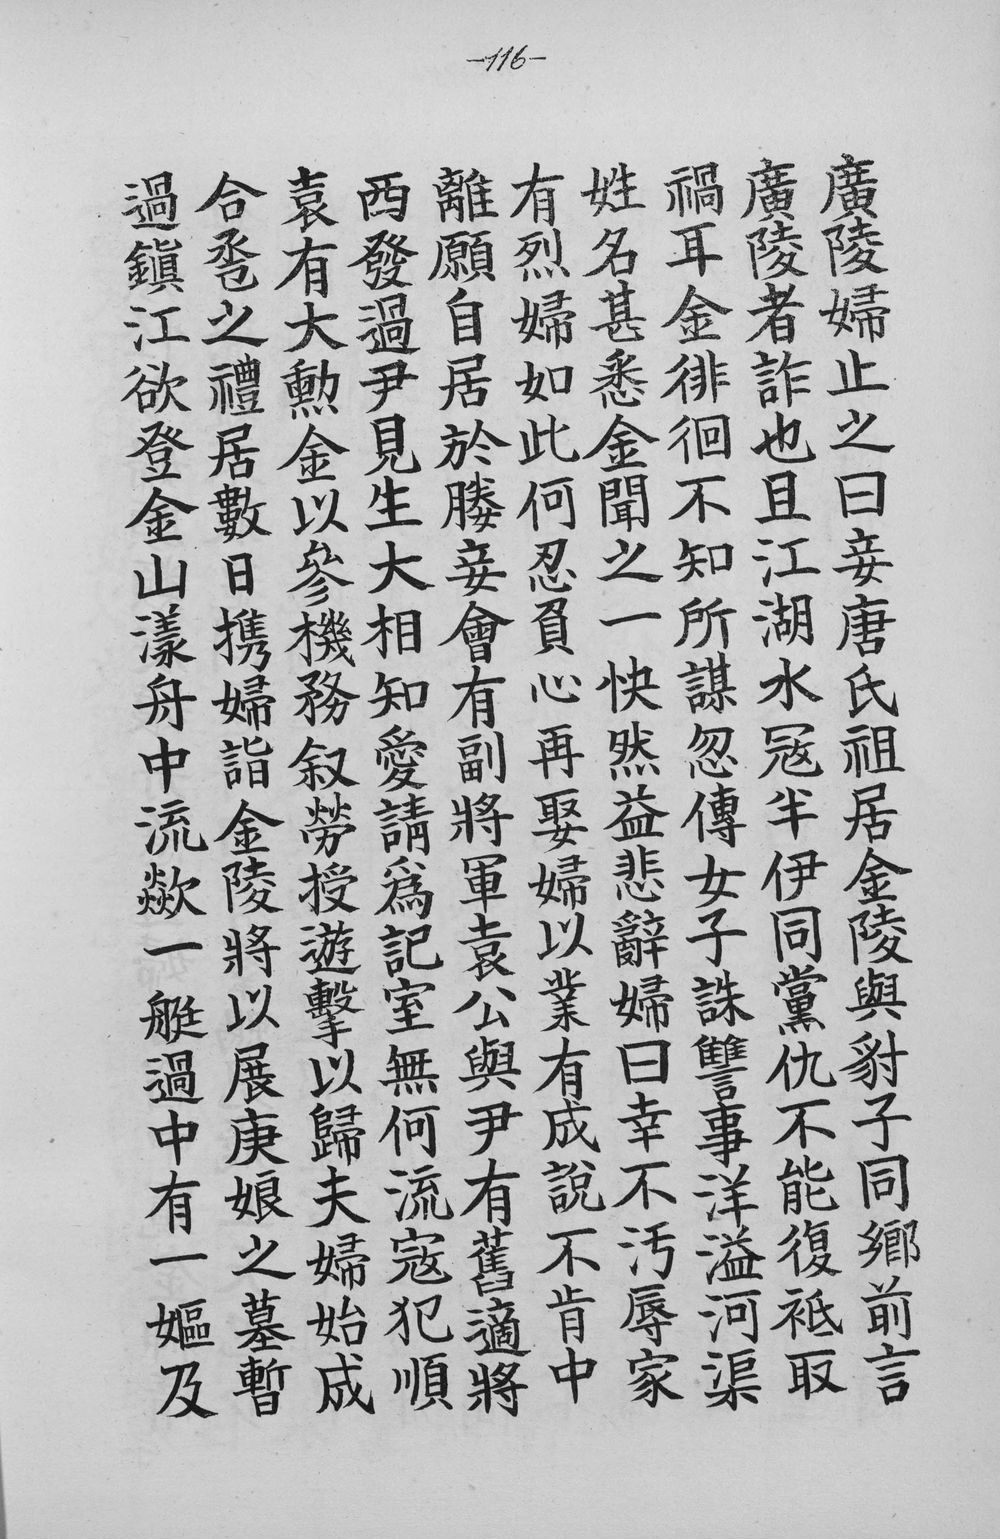 -116-
廣陵婦止之曰妾唐氏祖居金陵與豺子同鄉前言
廣陵者詐也且江湖水冦半伊同黨仇不能復祗取
禍耳金徘徊不知所謀忽傳女子誅讐事洋溢河渠
姓名甚悉金聞之一快然益悲辭婦曰幸不汚辱家
有烈婦如此何忍負心再娶婦以業有成說不肯中
離願自居於媵妾會有副將軍袁公與尹有舊適將
西發過尹見生大相知愛請爲記室無何流寇犯順
袁有大勲金以參機務叙勞授遊擊以歸夫婦始成
合巹之禮居數日携婦詣金陵將以展庚娘之墓暫
過鎭江欲登金山漾舟中流歘一艇過中有一嫗及